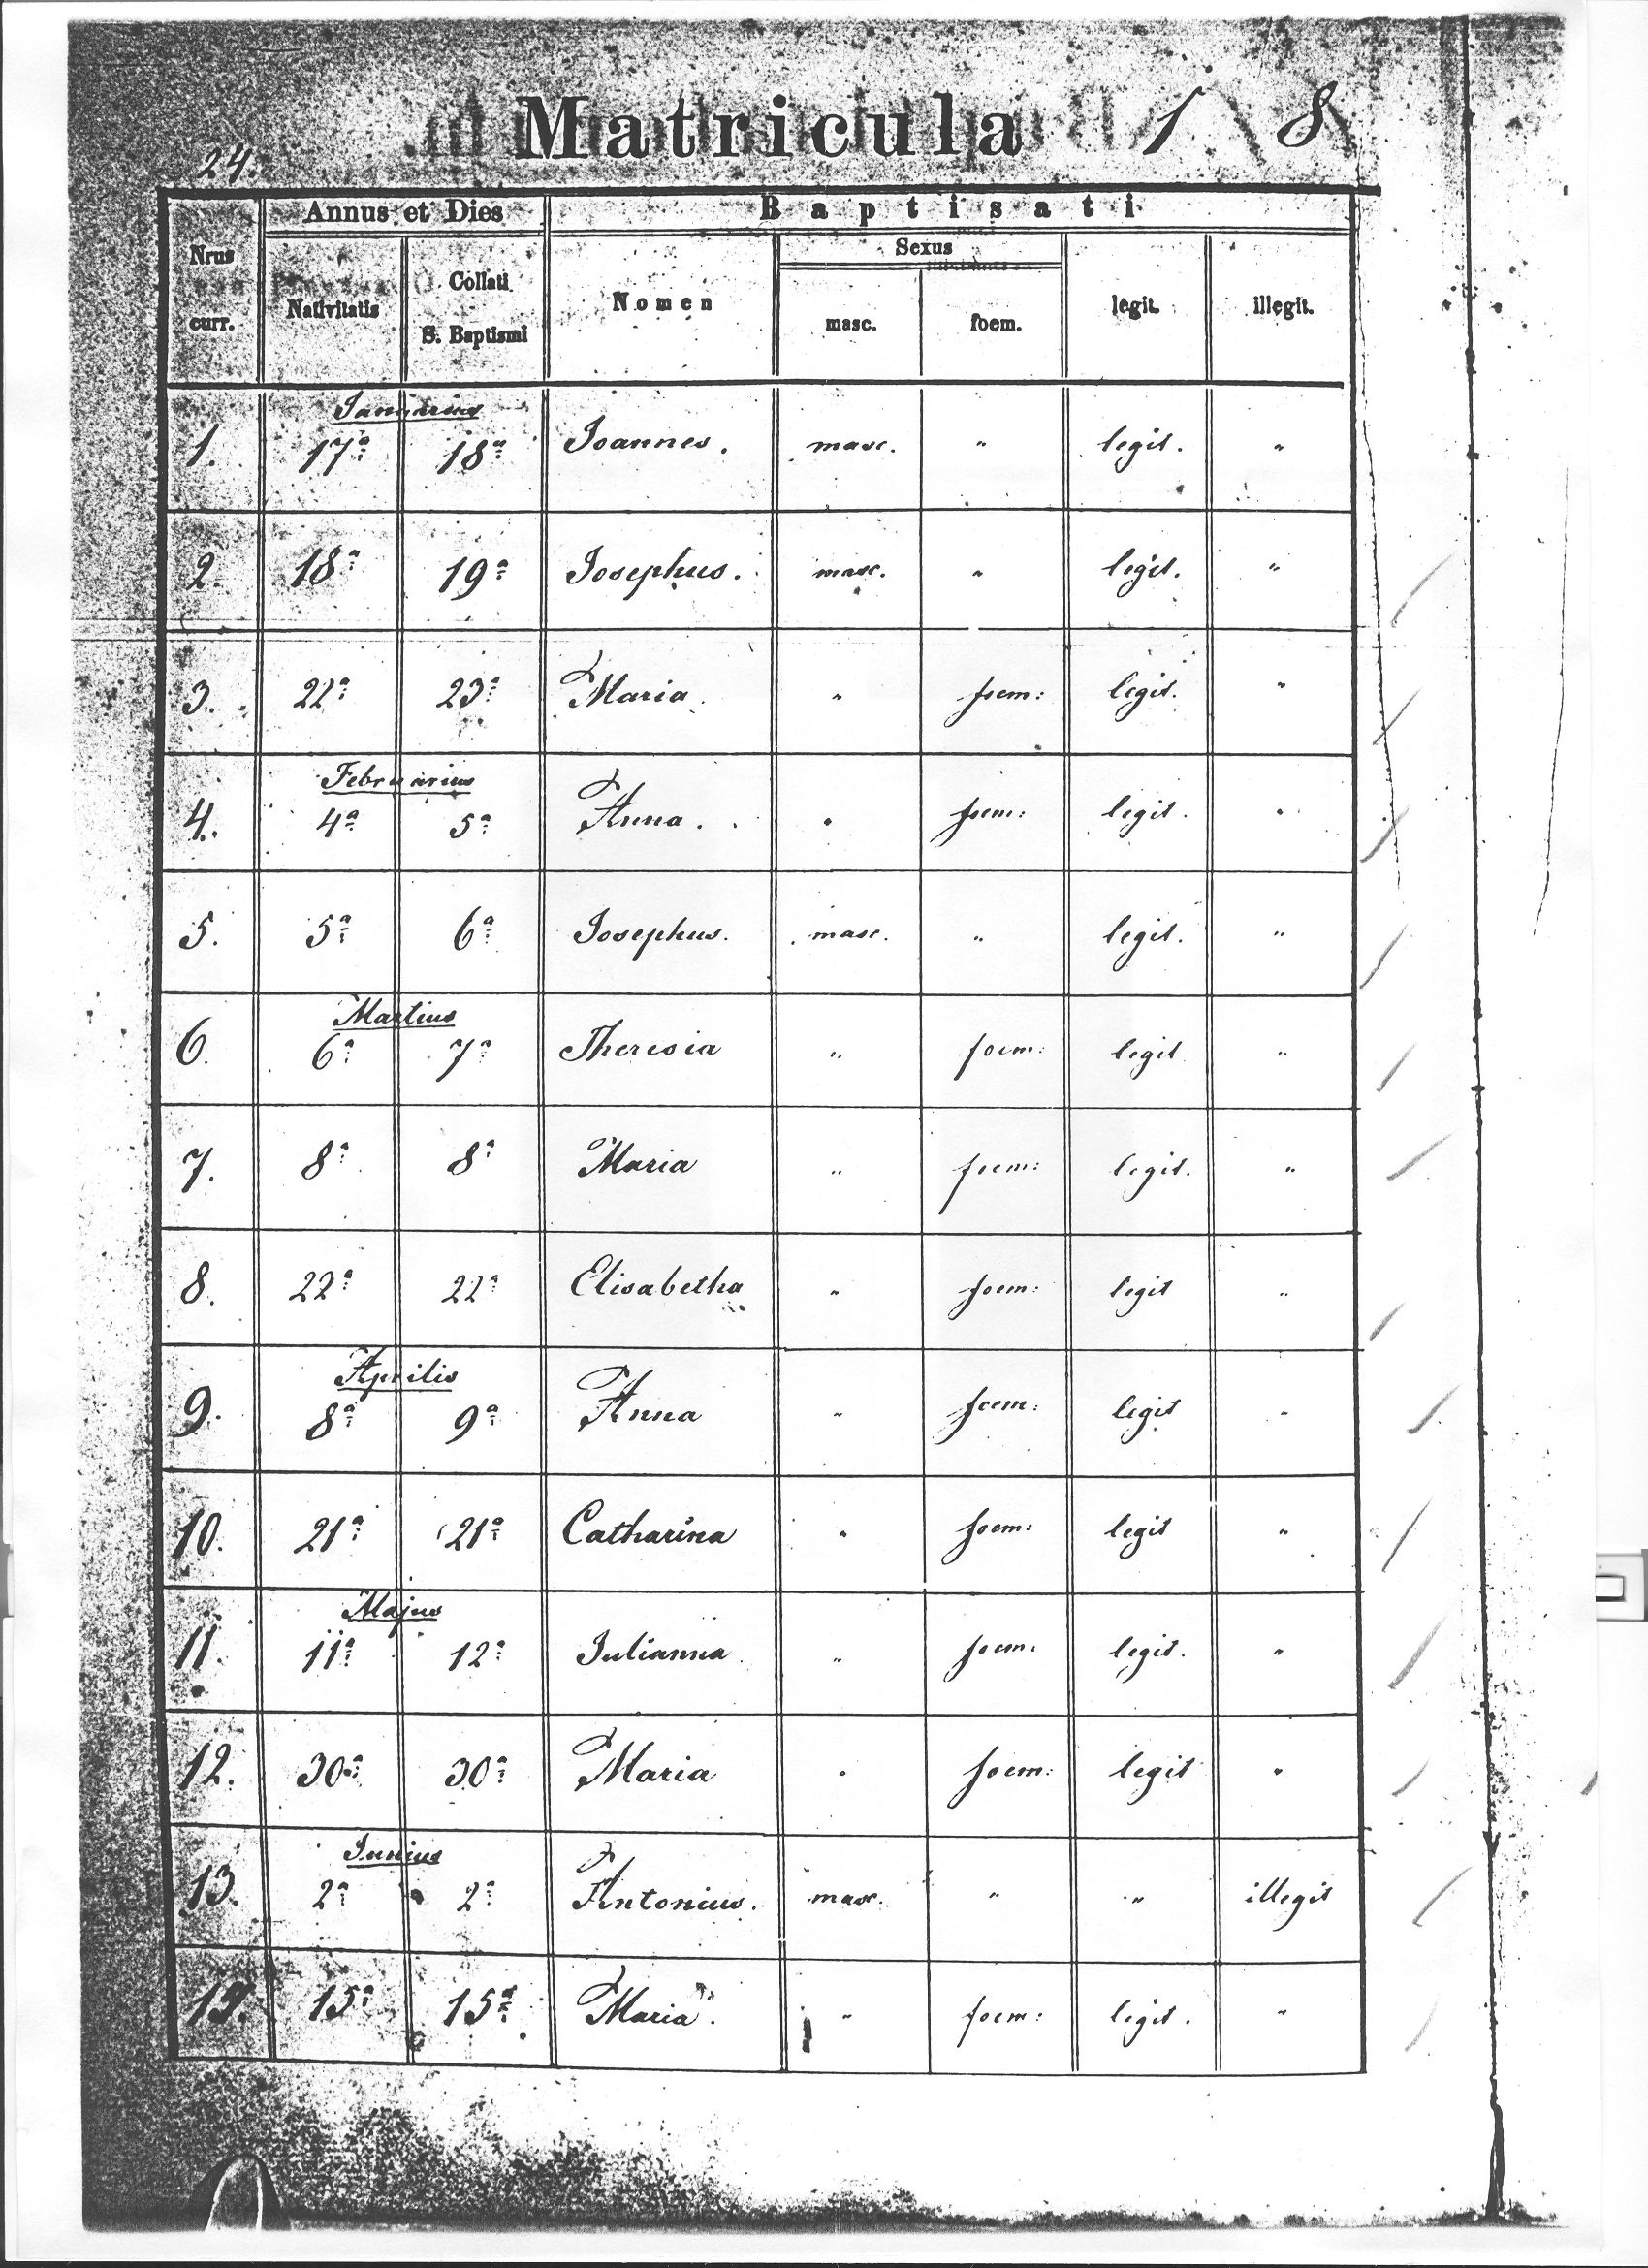 Matricula 1 8
24.
Annus et Dies Baptisati
Nrus curr. Nativitatis Collati S. Baptismi Nomen Sexus masc. foem. legit. illegit.
Januarius
1. 17ª 18ª Joannes. masc. " legit. "
2. 18ª 19ª Josephus. masc. " legit. "
3. 22ª 23ª Maria. " foem: legit. "
Februarius
4. 4ª 5ª Anna. " foem: legit. "
5. 5ª 6ª Josephus. masc. " legit. "
Martius
6. 6ª 7ª Theresia " foem: legit "
7. 8ª 8ª Maria " foem: legit. "
8. 22ª 22ª Elisabetha " foem: legit "
Aprilis
9. 8ª 9ª Anna " foem: legit "
10. 21ª 21ª Catharina " foem: legit "
Majus
11. 11ª 12ª Julianna " foem: legit. "
12. 30ª 30ª Maria " foem: legit "
Junius
13. 2ª 2ª Antonius. masc. " " illegit
15ª 15ª Maria. " foem: legit. "